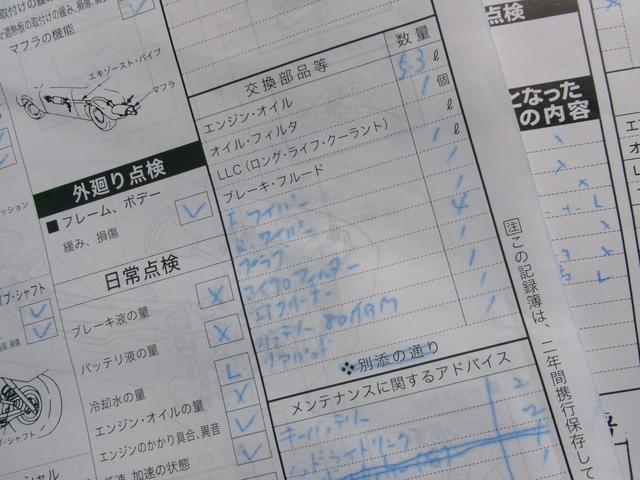 取付けの緩み、損傷
マフラの機能
エキゾースト・パイプ
マフラ
外廻り点検
■フレーム、ボデー
緩み、損傷
日常点検
ブレーキ液の量
バッテリ液の量
冷却水の量
エンジン・オイルの量
エンジンのかかり具合、異音
加速の状態
交換部品等 数量
エンジン・オイル 5.3 ℓ
オイル・フィルタ 1 個
LLC(ロング・ライフ・クーラント) ℓ
ブレーキ・フルード 1 ℓ
F.ワイパー 1
R.ワイパー 1
プラグ 4
マイクロフィルター 1
エアクリーナー 1
バッテリー 80AGM 1
リアパッド 1
❖別添の通り
メンテナンスに関するアドバイス
キーバッテリー 2
ヘッドライトリング 2
点検
となった
の内容
注 この記録簿は、二年間携行保存して